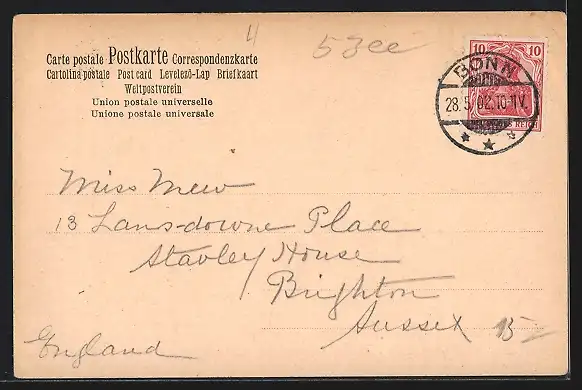 4
53ee
Carte postale Postkarte Correspondenzkarte
Cartolina postale Post card Levelező-Lap Briefkaart
Weltpostverein
Union postale universelle
Unione postale universale
10 10
BONN
28.5.02.10-11V.
REICH
Miss Mew
13 Lansdowne Place
Stavley House
Brighton
Sussex
England